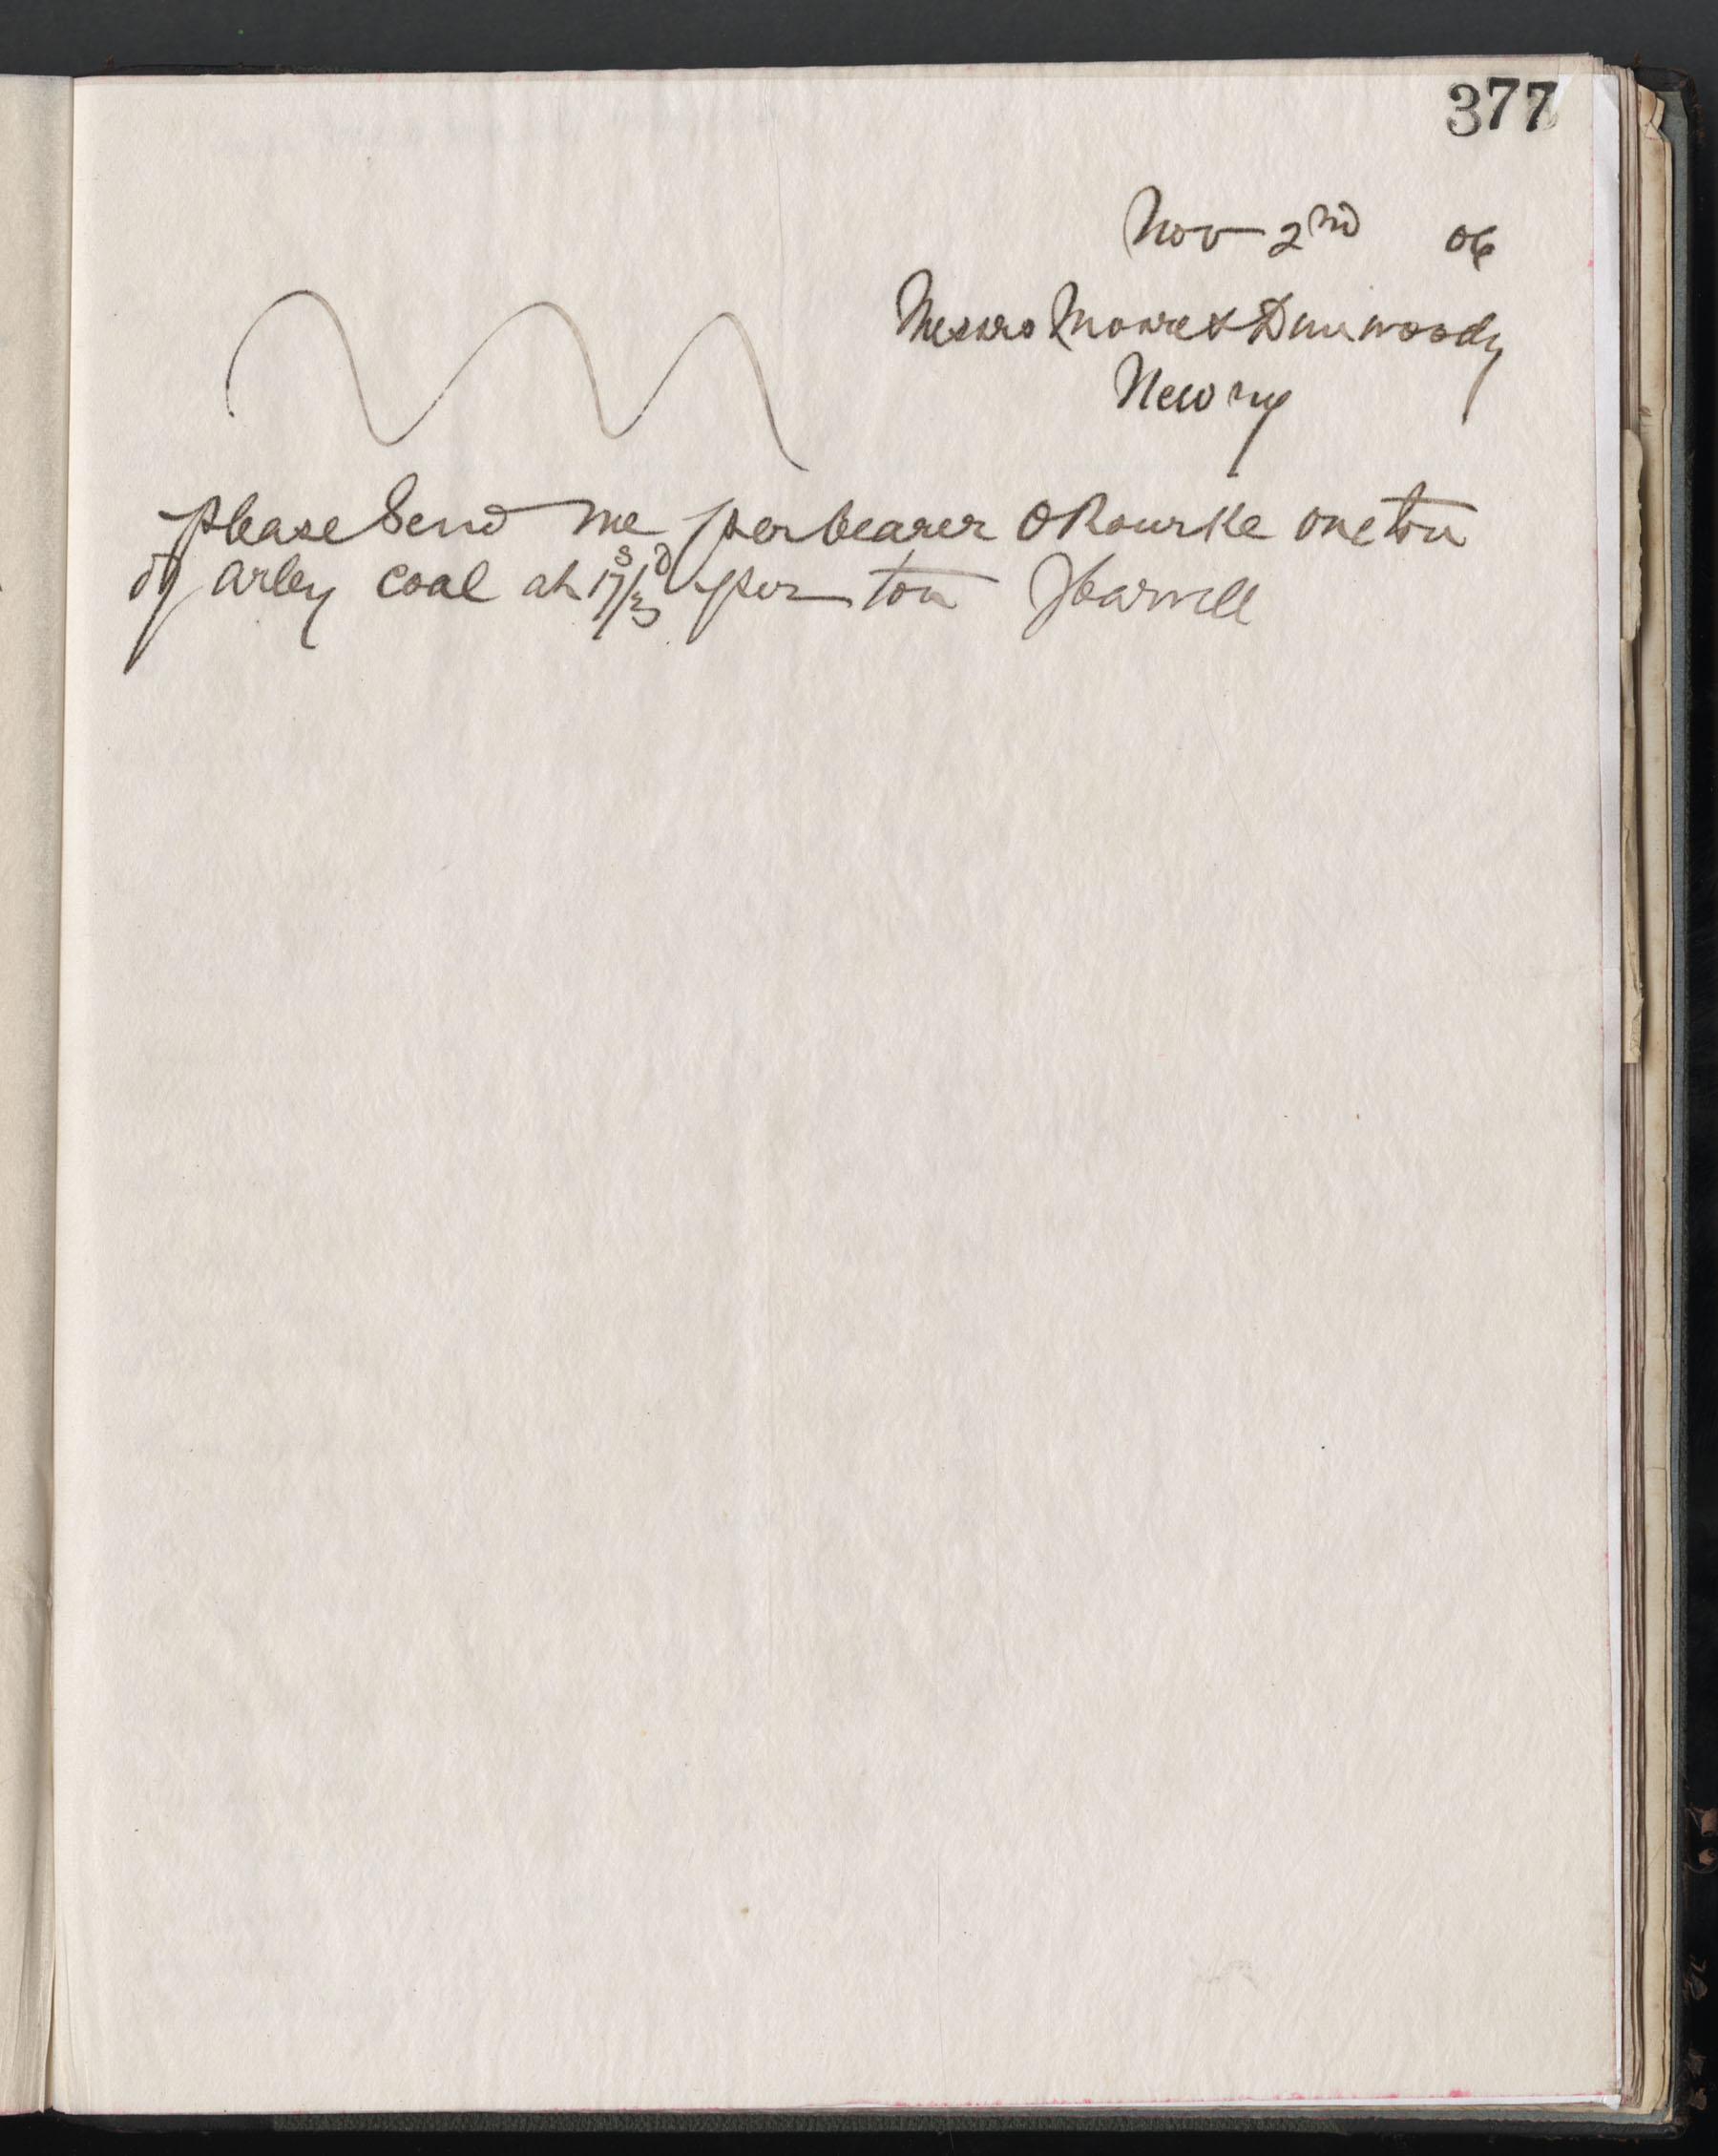 377
Nov 2nd 06
Messrs Moore & Dunwoody
Newry
please Send me per bearer O Rourke one ton
of arley coal at 17s/3d per ton